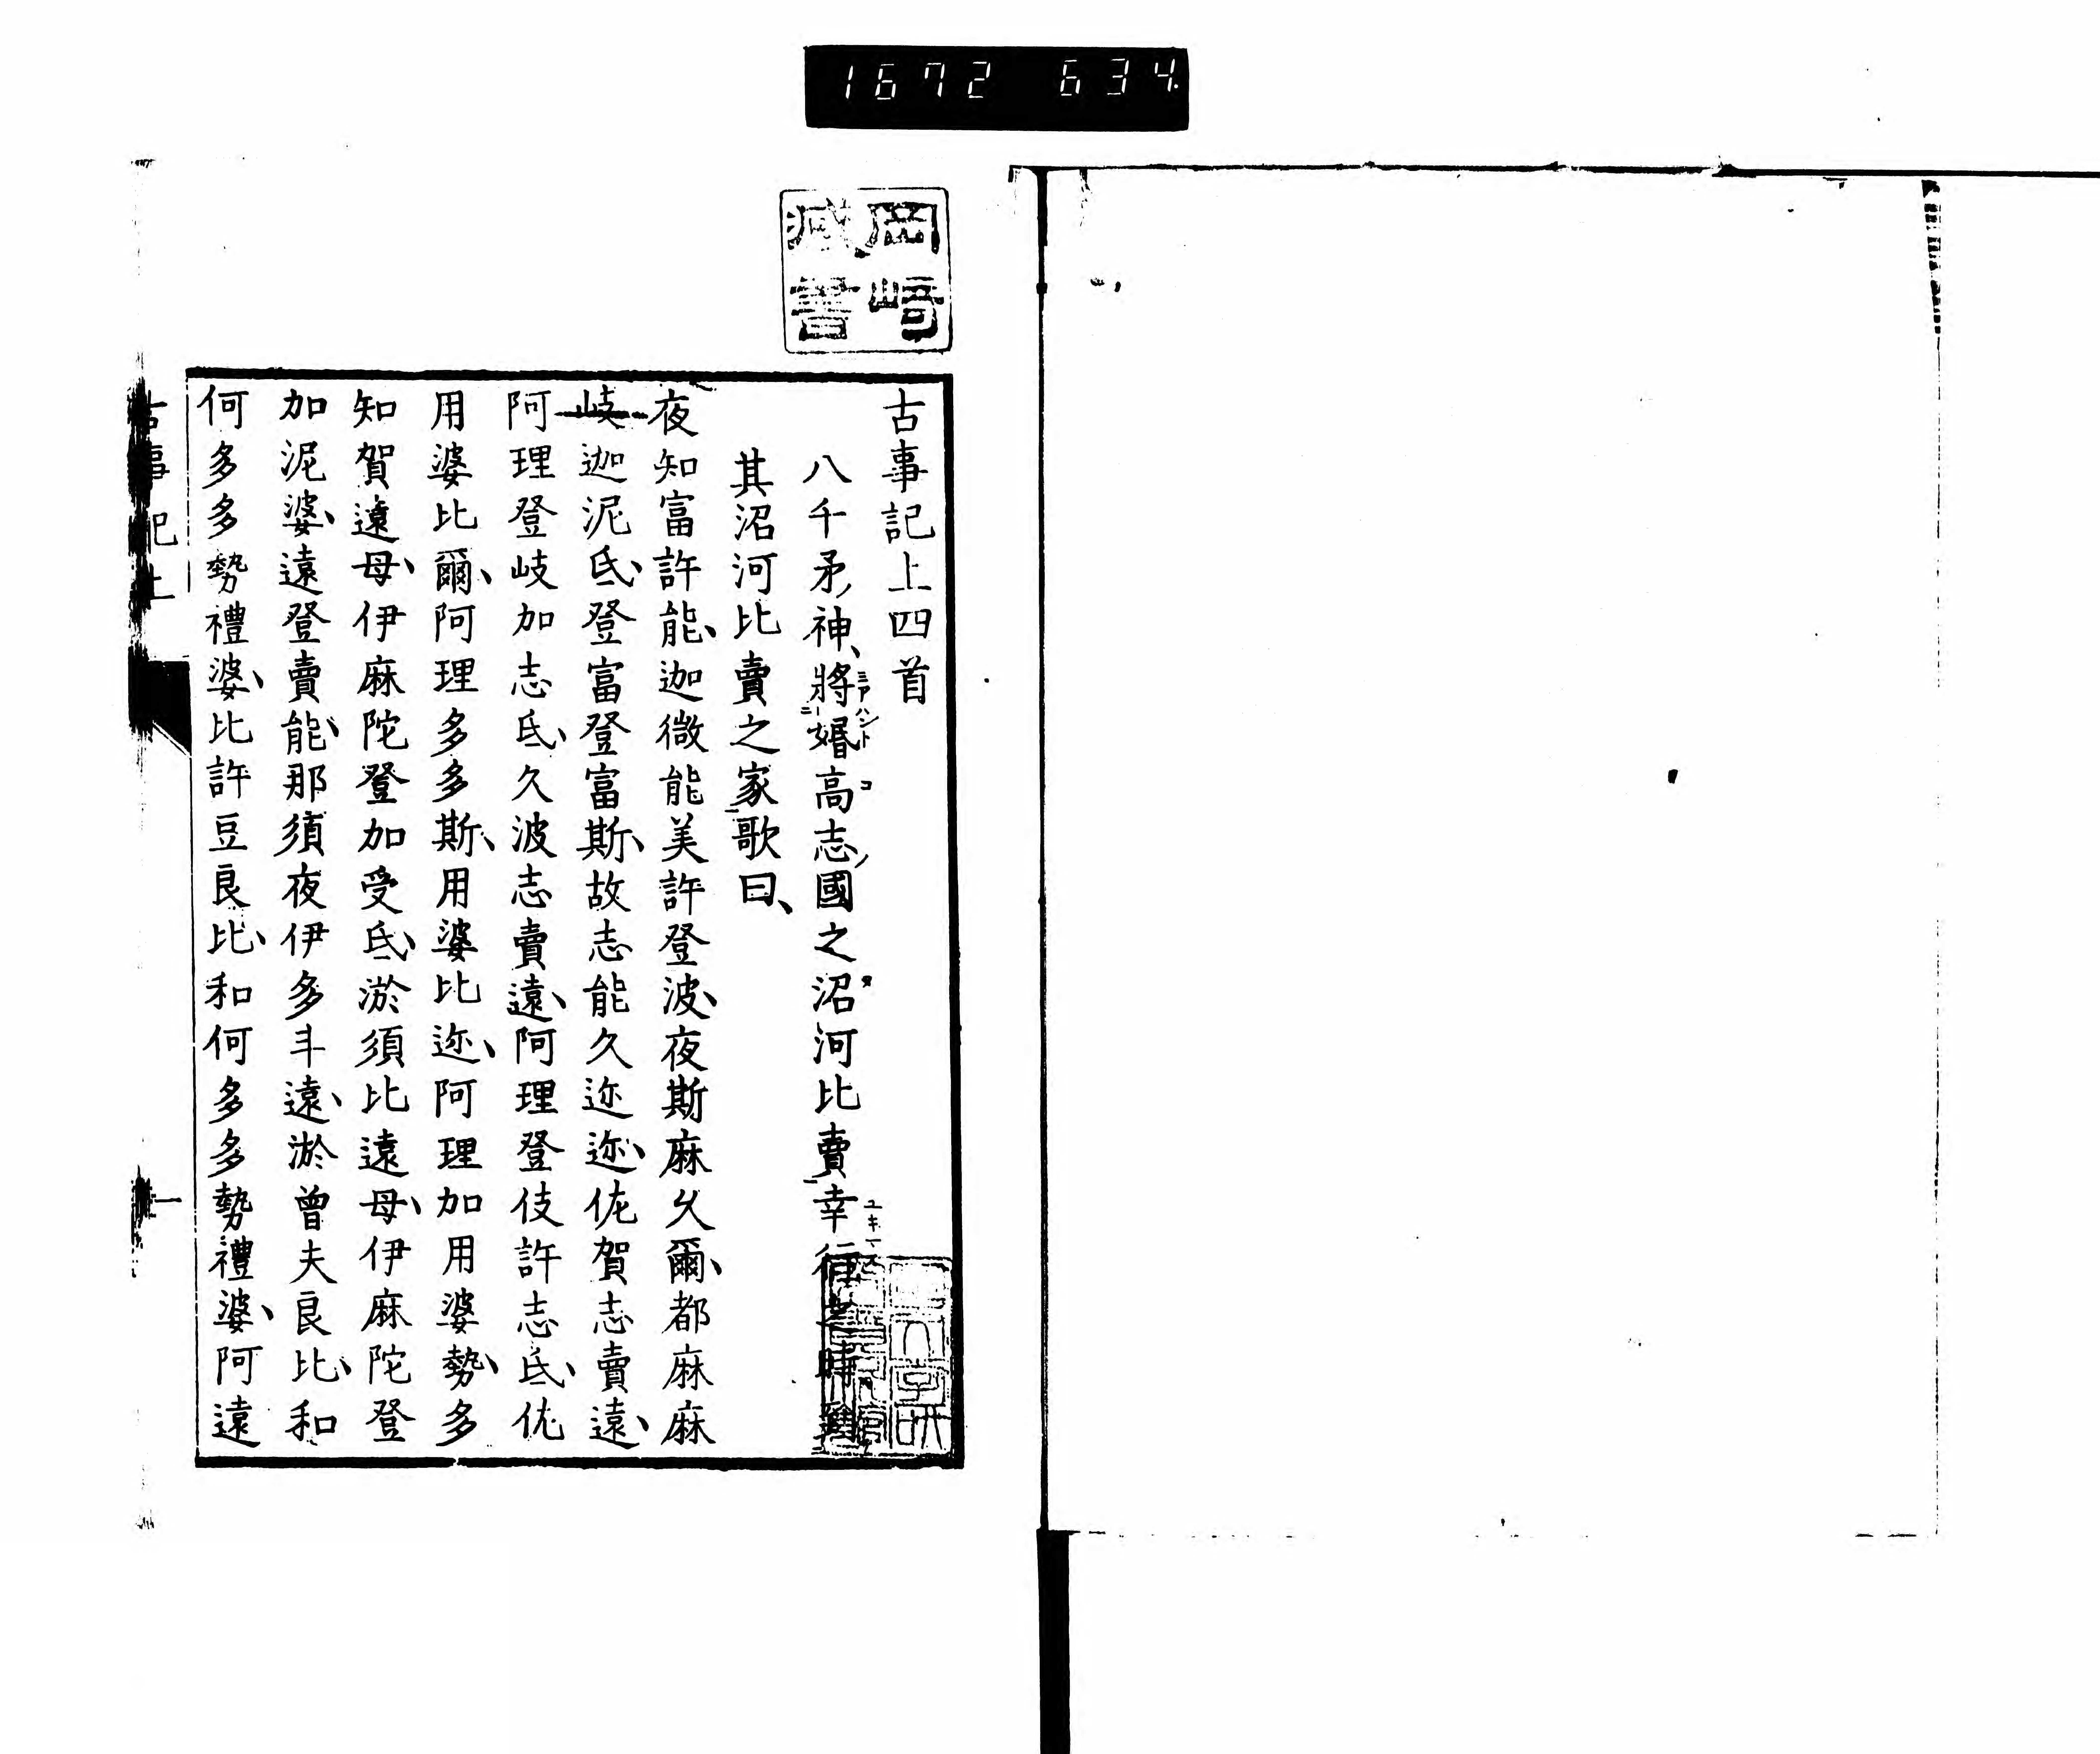 1672 634
岡崎
藏書
古事記上四首
八千矛ノ神、將婚高志ノ國之沼河比賣幸行之時到
其沼河比賣之家歌曰、
夜知富許能、迦微能美許登波、夜斯麻久爾、都麻麻
岐迦泥氐、登富登富斯、故志能久迩迩、佐賀志賣遠、
阿理登岐加志氐、久波志賣遠、阿理登伎許志氐、佐
用婆比爾、阿理多多斯、用婆比迩、阿理加用婆勢、多
知賀遠母、伊麻陀登加受氐、淤須比遠母、伊麻陀登
加泥婆、遠登賣能、那須夜伊多斗遠、淤曾夫良比、和
何多多勢禮婆、比許豆良比、和何多多勢禮婆、阿遠
古事記上
一